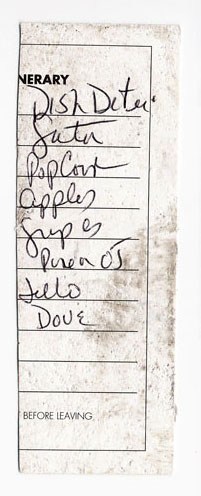 NERARY
Dish Deter
Gator
Pop Corn
apples
Grapes
Puree OJ
Jello
Dove
BEFORE LEAVING